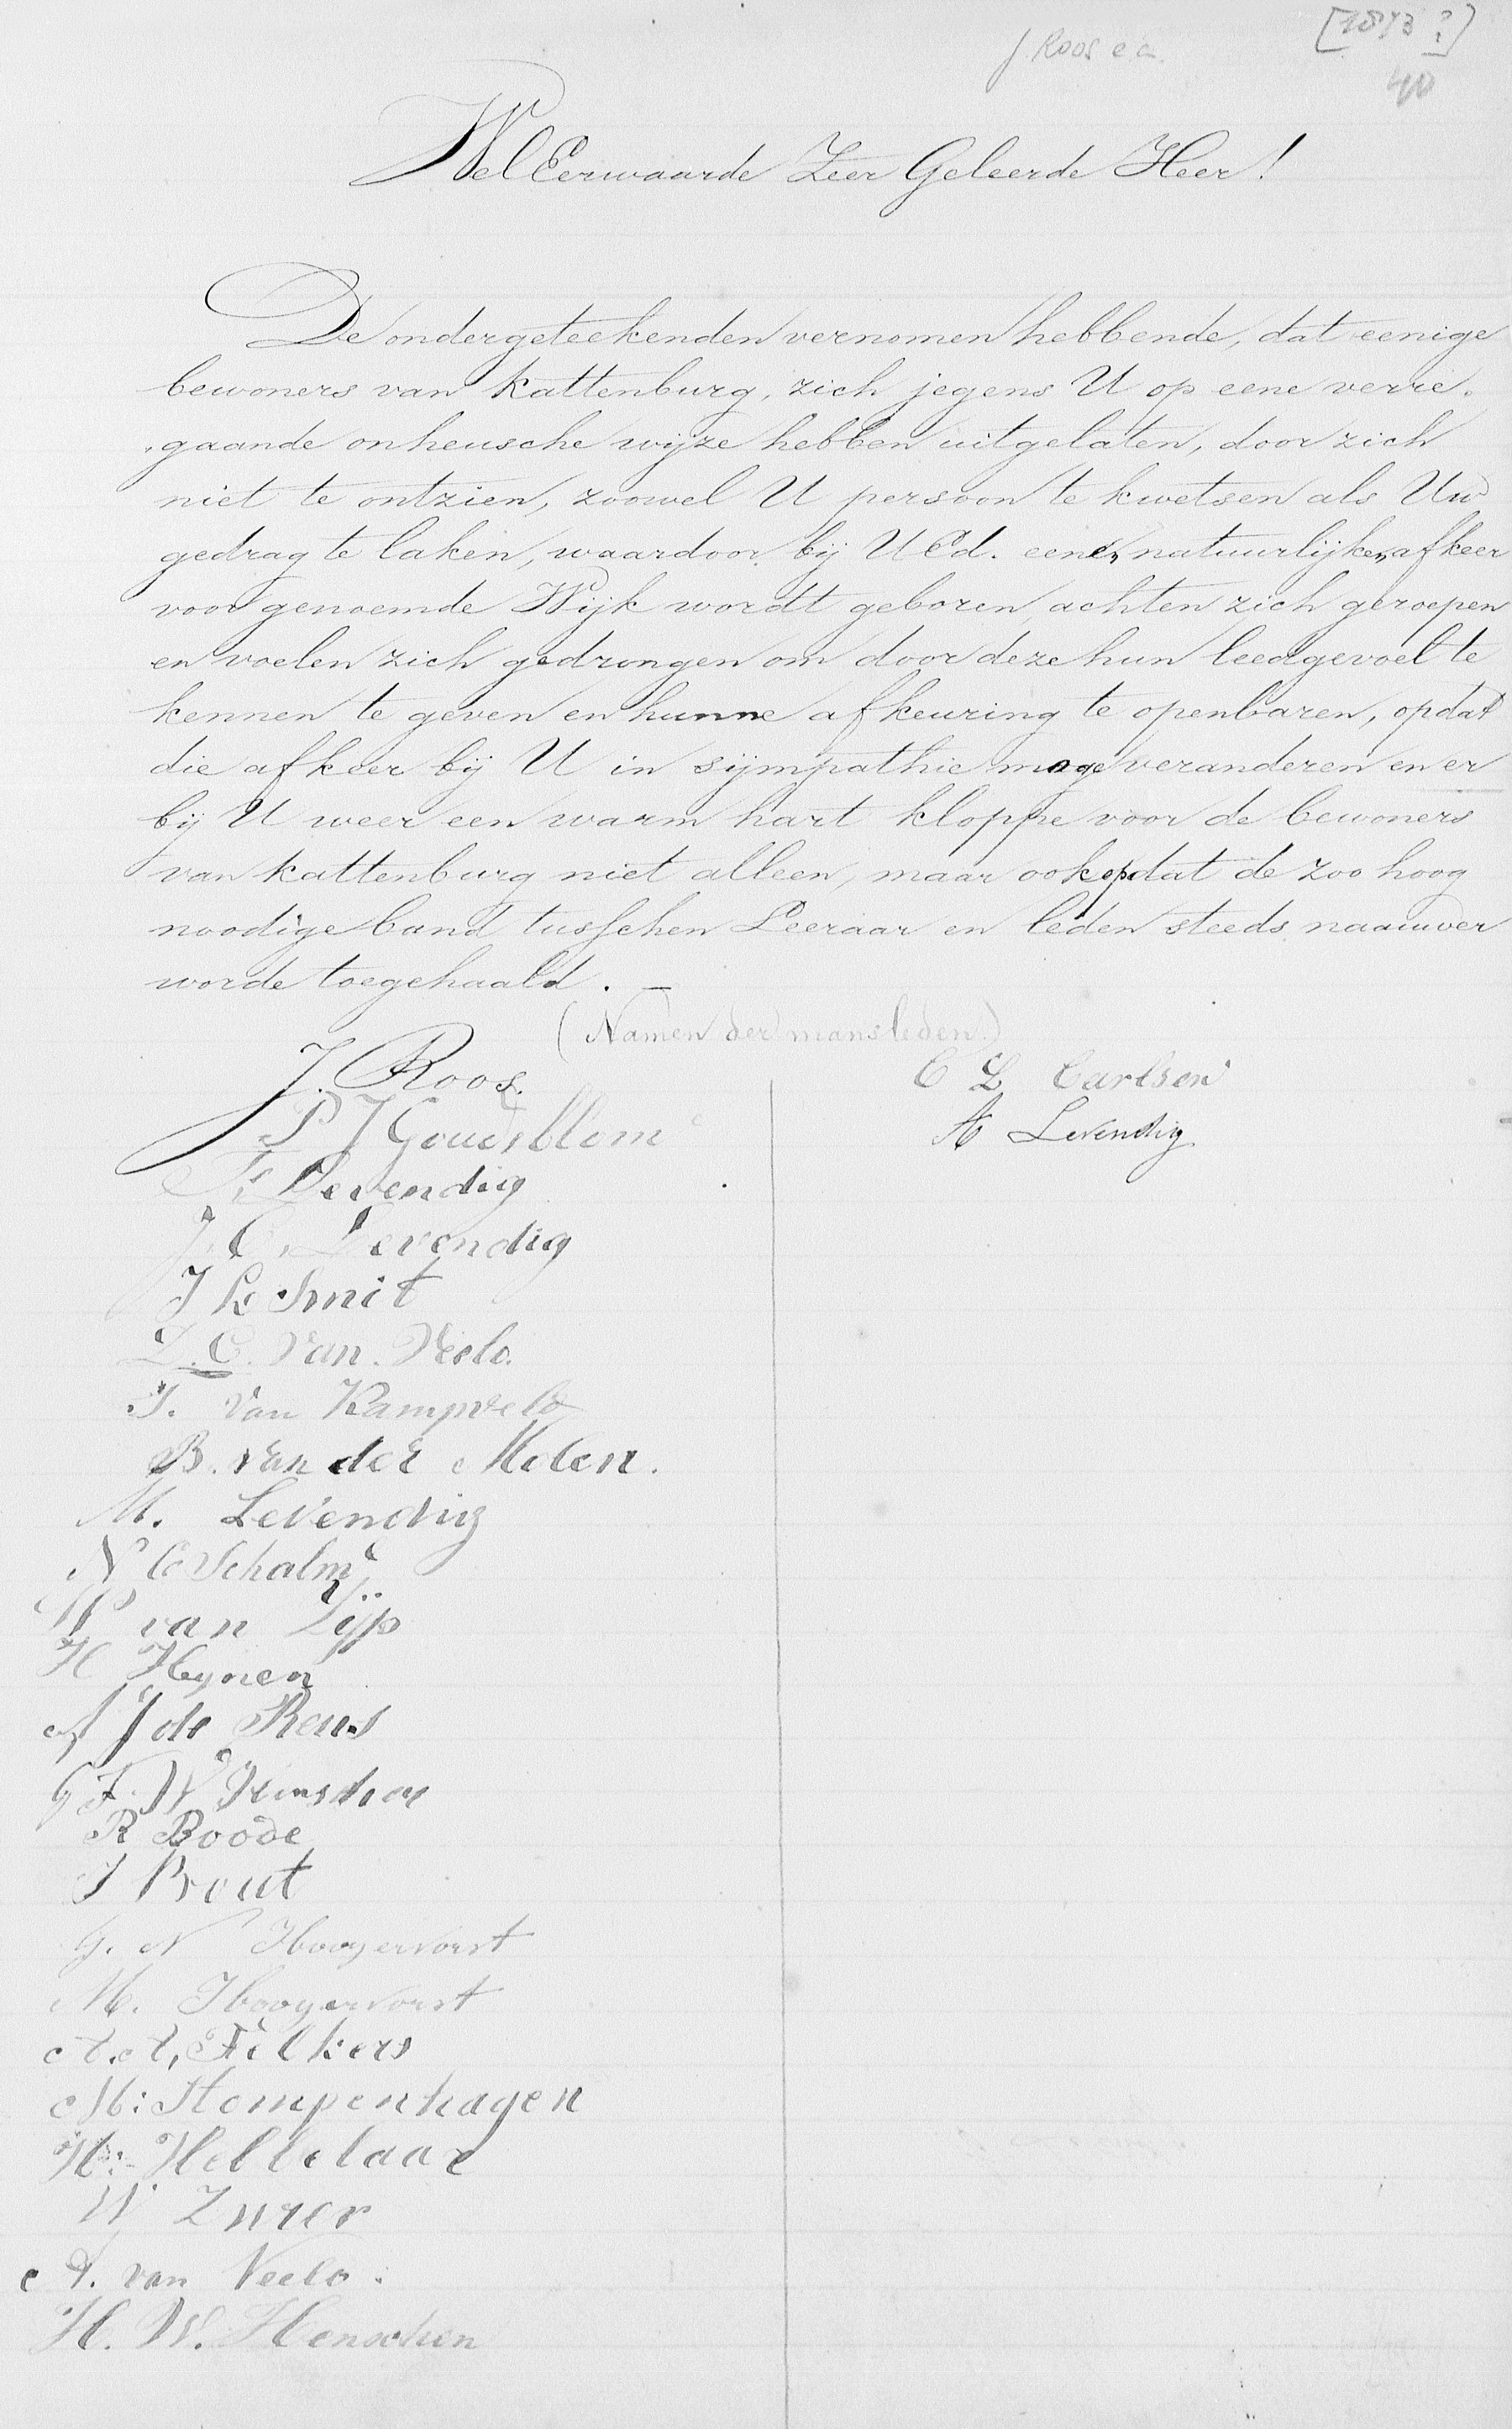 J. Roos e a.
[1873?]
40
WelEerwaarde Zeer Geleerde Heer!
De ondergeteekenden vernomen hebbende, dat eenige
bewoners van Kattenburg, zich jegens U op eene verre-
-gaande onheusche wijze hebben uitgelaten, door zich
niet te ontzien, zoowel U persoon te kwetsen als Uw
gedrag te laken, waardoor bij UEd. eenen natuurlijken afkeer
voor genoemde Wijk wordt geboren, achten zich geroepen
en voelen zich gedrongen om door deze hun leedgevoel te
kennen te geven en hunne afkeuring te openbaren, opdat
die afkeer bij U in sijmpathie moge veranderen en er
bij U weer een warm hart kloppe voor de bewoners
van Kattenburg niet alleen, maar ook opdat de zoo hoog
noodige band tusschen Leeraar en leden steeds naauwer
worde toegehaald. —
(Namen der mansleden.)
J. Roos.
P J Goudsblom
F. Levendig
J. C. Levendig
J K Smit
L. C. van Veelo.
J. van Kampveld
B. van der Molen.
M. Levendig
N C Schalm
W van Zijp
H Heynen
A J de Reus
G F W Henschen
R Boode
J Bout
G. N Hoogervorst
M. Hoogervorst
A. A. Filkers
M: Stompenhagen
H: Hellelaar
W Zurer
A. van Veelo.
H. W. Henschen
C L Carlsen
A Levendig